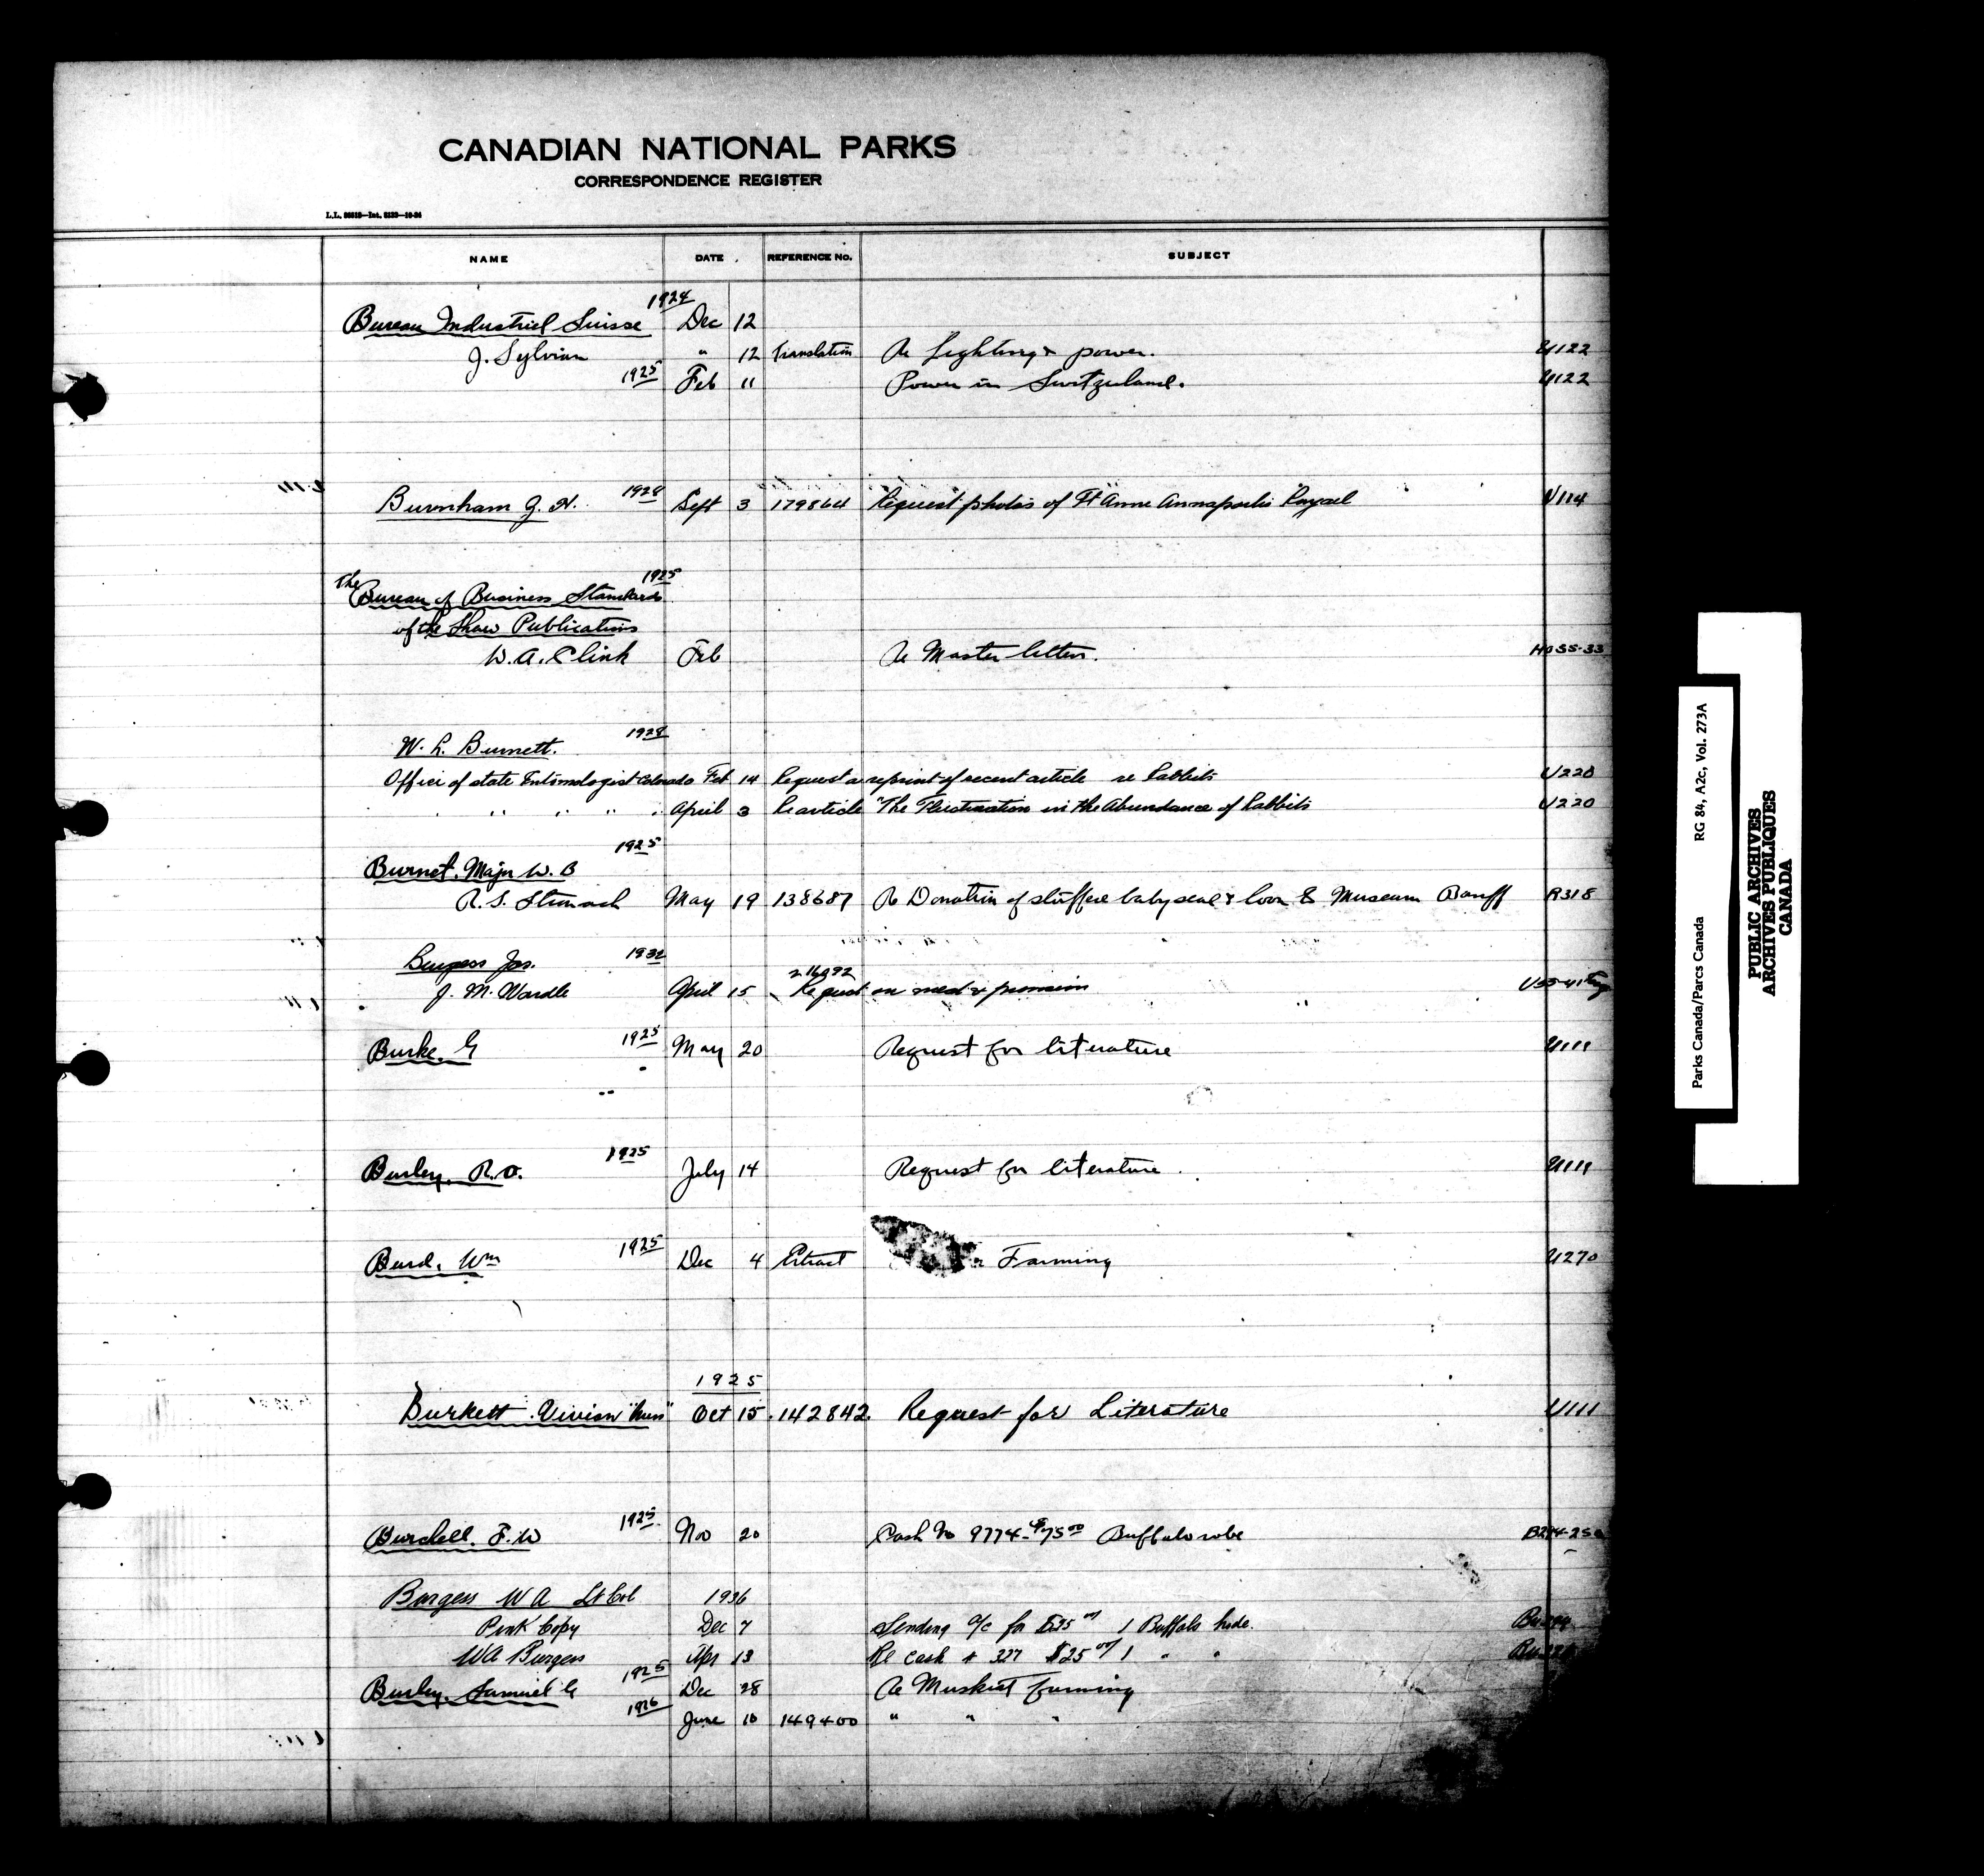 CANADIAN NATIONAL PARKS
CORRESPONDENCE REGISTER
NAME DATE REFERENCE No. SUBJECT
1924
Bureau Industriel Suisse Dec 12
J. Sylvian " 12 Translation Re Lighting & power. U122
1925 Feb 11 Power in Switzerland. U122
Burnham G. H. 1928 Sept 3 179864 Request photos of Ft Anne Annapolis Royal U114
1925
The Bureau of Business Standards
of the Shaw Publications
W. A. Clink Feb Re Master letters.
W. L. Burnett. 1928
Office of state Entomologist Colorado Feb 14 Request a reprint of recent article re Rabbits U220
" " " " April 3 Re article "The Fluctuation in the Abundance of Rabbits U220
1925
Burnet, Major W. B
R. S. Stronach May 19 138687 Re Donation of stuffed baby seal & loon to Museum Banff R318
Burgess Jas. 1932
216992
J. M. Wardle April 15 Request on
Burke, G 1925 May 20 Request for literature U111
Burley, R.O. 1925 July 14 Request for literature. U111
Burd, Wm 1925 Dec 4 Extract Farming U270
1925
Burkett Vivian "Miss" Oct 15 142842 Request for Literature U111
Burchell, F. W 1925 Nov 20 Cash No 9774 - $75.00 Buffalo robe
Burgess W A Lt Col 1926
Pink Copy Dec 7 Sending a/c for 1 Buffalo hide.
WA Burgess Apr 13 Re cash # 327 $25 00/ 1 " "
Burley, Samuel G 1925 Dec 28 Re Muskrat farming
1926 June 10 149400 " " "
Parks Canada/Parcs Canada RG 84, A2c, Vol. 273A
PUBLIC ARCHIVES
ARCHIVES PUBLIQUES
CANADA